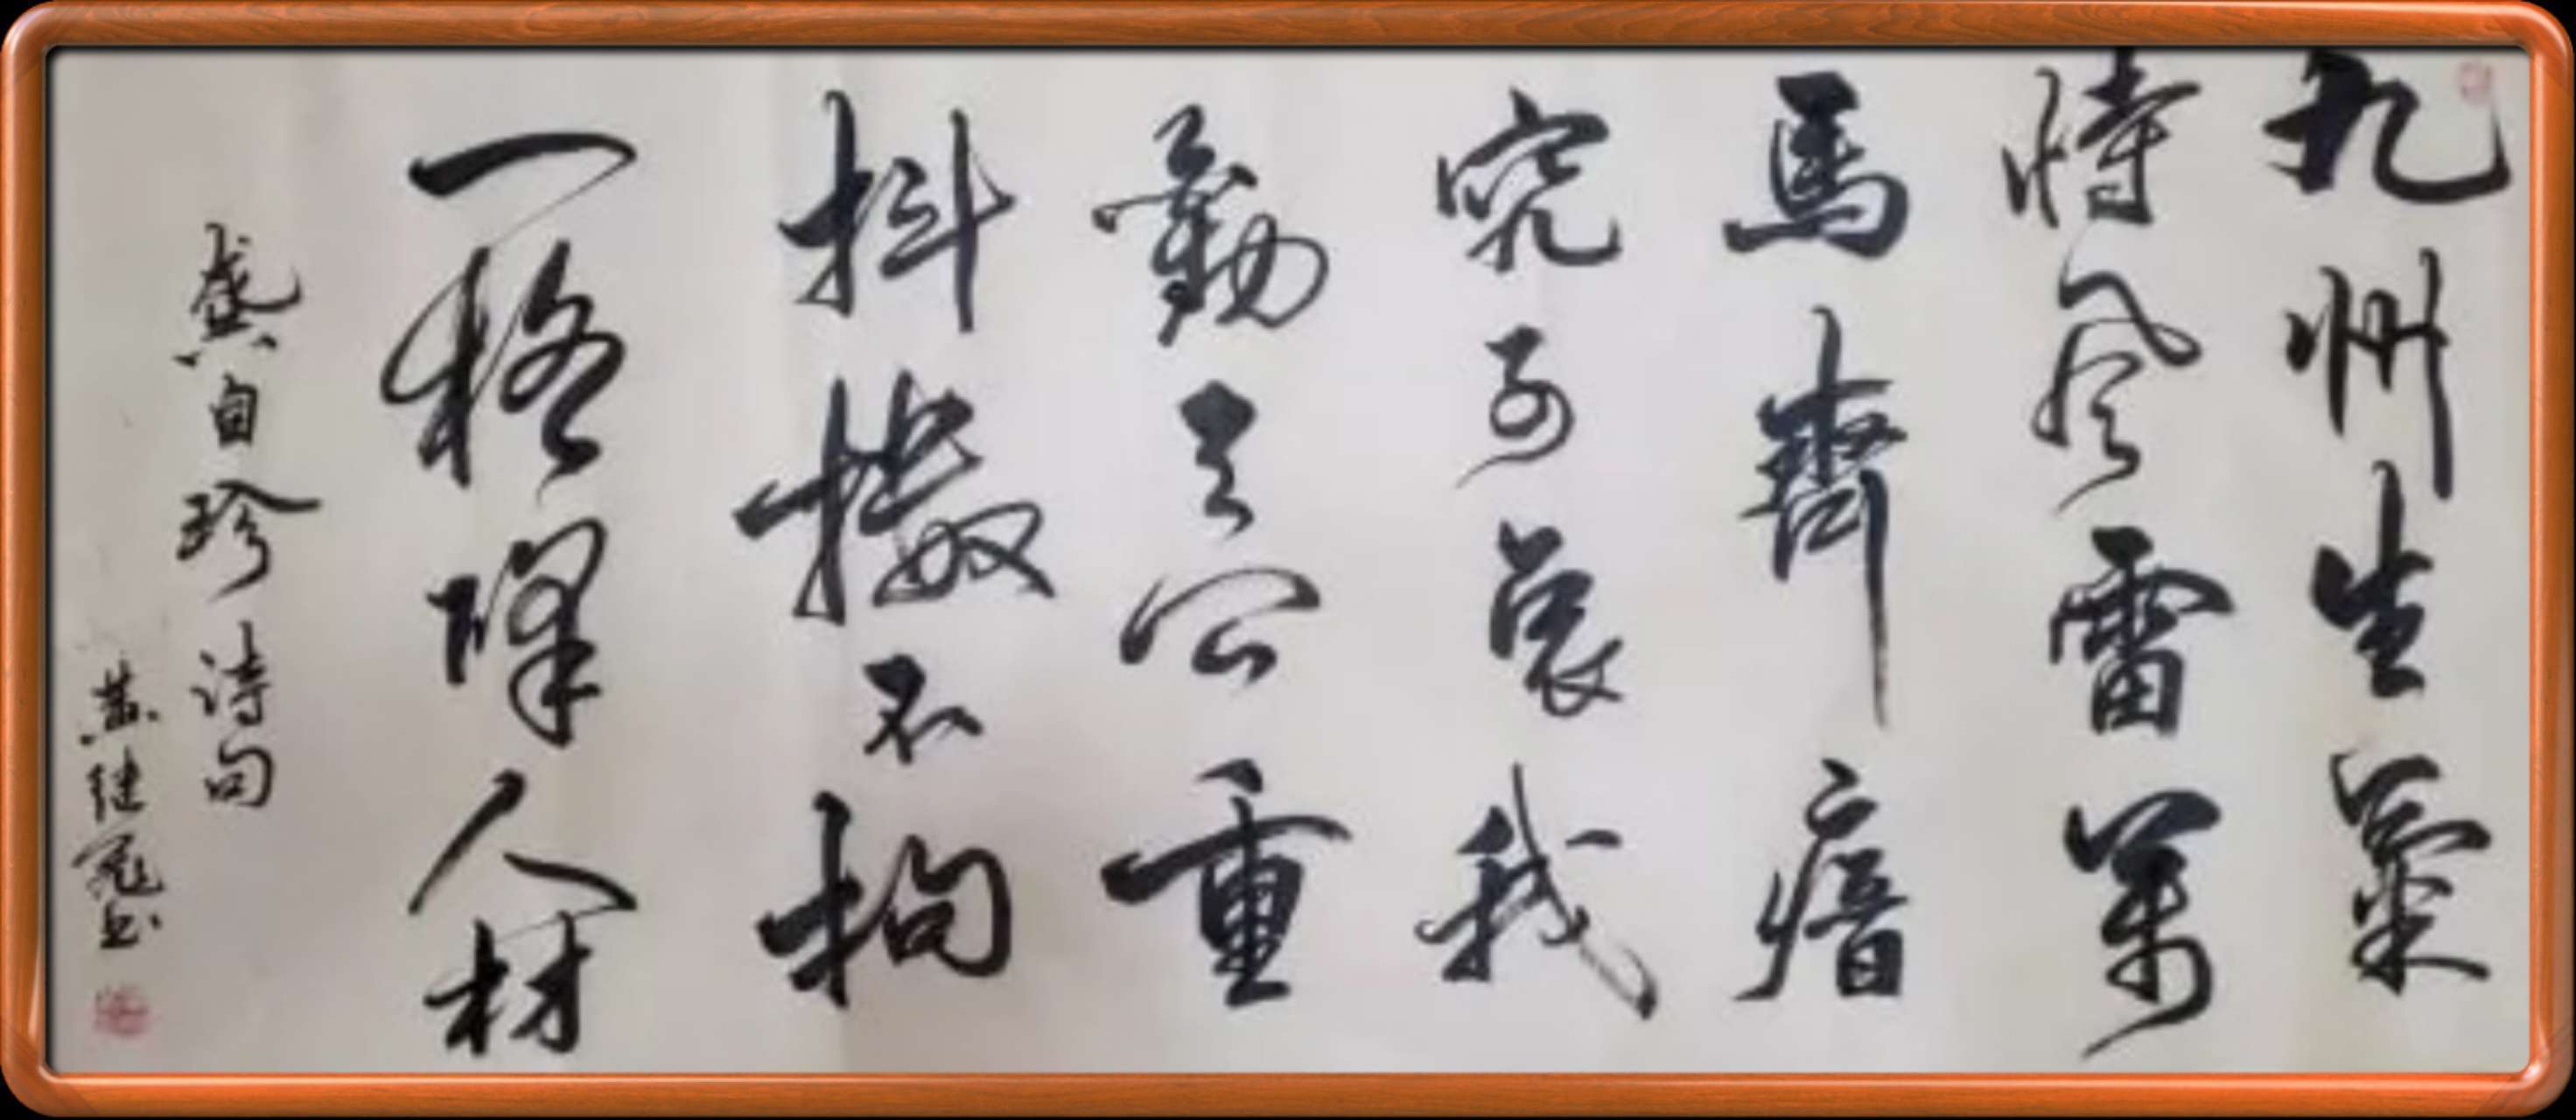 九州生氣
恃風雷萬
馬齊瘖
究可哀我
勸天公重
抖擻不拘
一格降人材
龔自珍诗句